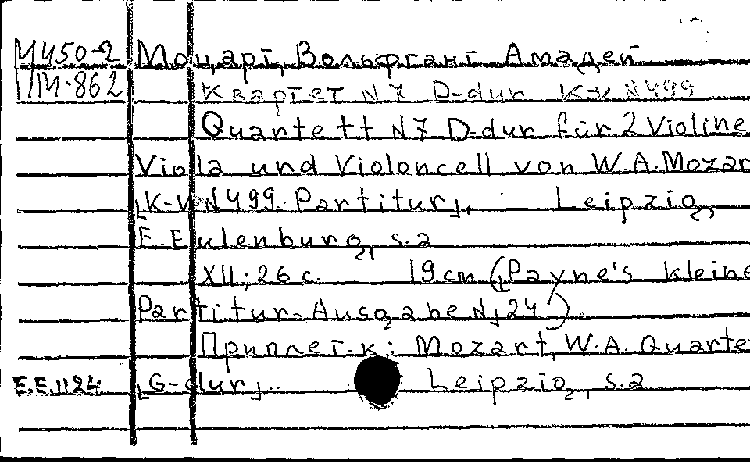 М450-2 Моцарт, Вольфганг Амадей
ПМ-862 Квартет N7 D-dur К-V N499
Quartett N7 D-dur für 2 Violine
Viola und Violoncell von W.A.Mozar
[K-V N499. Partitur]. Leipzig,
E. Eulenburg, s.a
XII; 26 с. 19 см (Payne's kleine
Partitur-Ausgabe N, 24)
Приплет. к: Mozart, W.A. Quarte
E.E.1124 [G-dur]. Leipzig, s.a